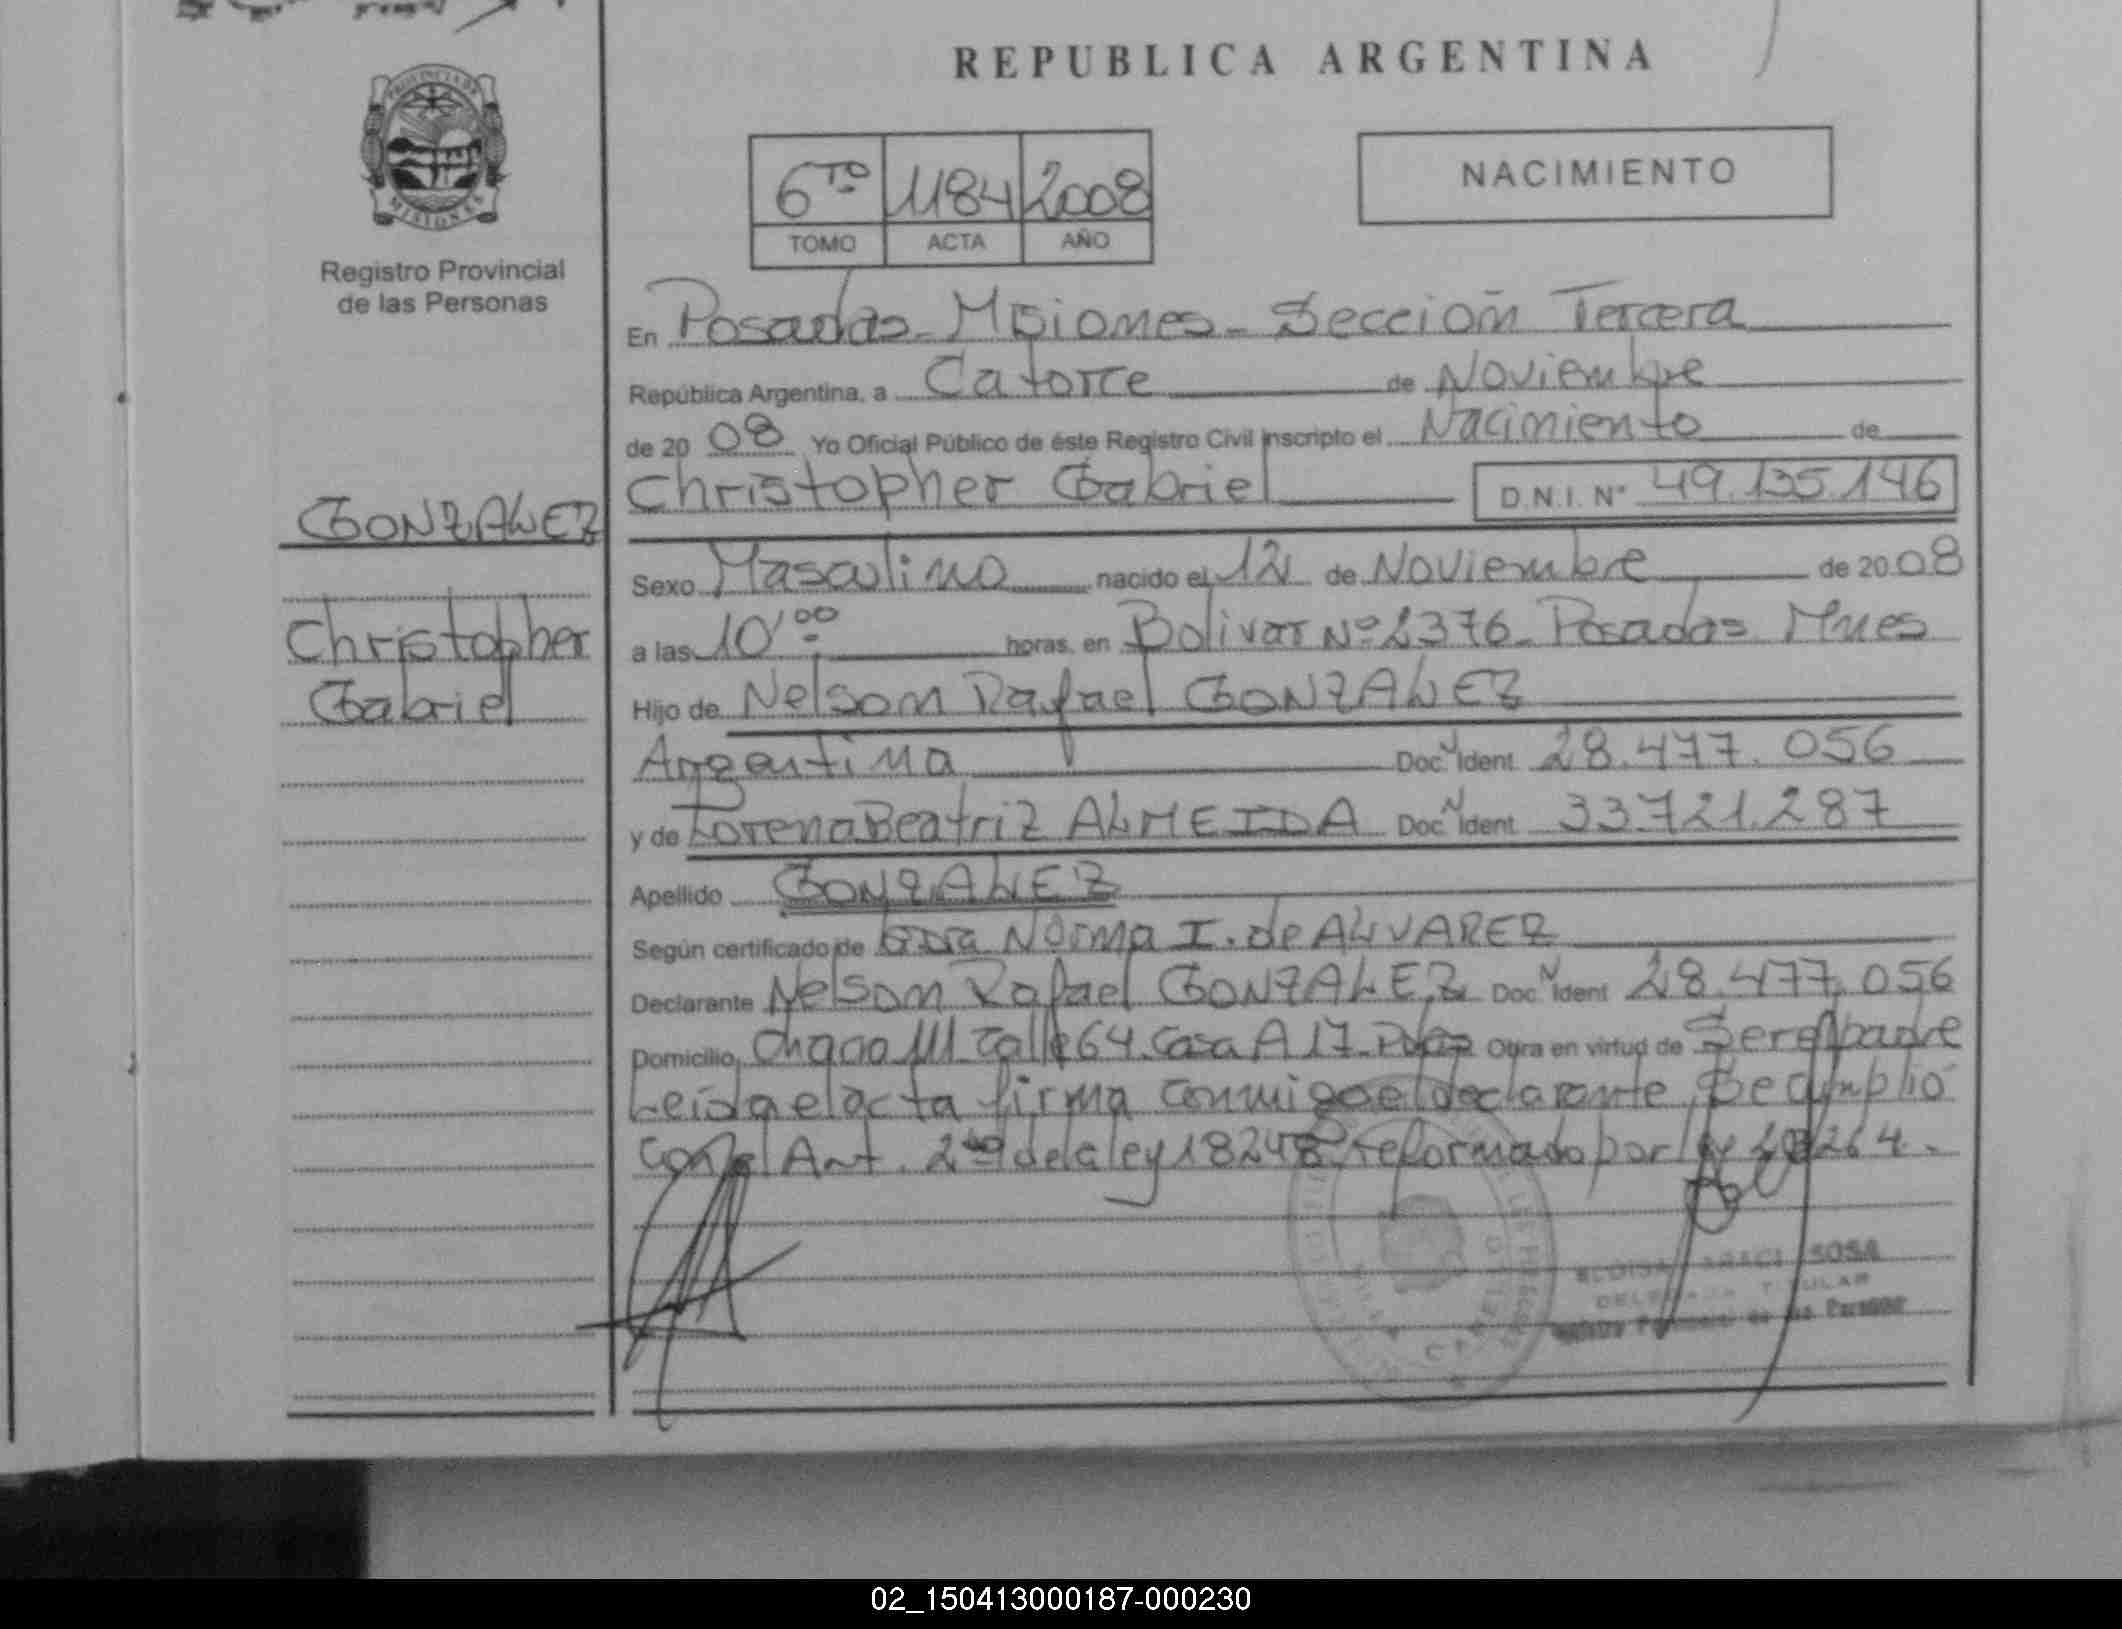 REPUBLICA ARGENTINA
PROVINCIA DE
MISIONES
Registro Provincial
de las Personas
NACIMIENTO
6TO 1184 2008
TOMO ACTA AÑO
En Posadas - Misiones - Sección Tercera
República Argentina, a Catorce de Noviembre
de 20 08 Yo Oficial Público de éste Registro Civil inscripto el Nacimiento de
Christopher Gabriel D.N.I. Nº 49.135.146
GONZALEZ
Christopher
Gabriel
Sexo Masculino nacido el 12 de Noviembre de 20 08
a las 10'00 horas, en Bolivar Nº 2376 - Posadas Mnes
Hijo de Nelson Rafael GONZALEZ
Argentina Doc. N Ident 28.477.056
y de Lorena Beatriz ALMEIDA Doc. N Ident 33.721.287
Apellido GONZALEZ
Según certificado de Norma I. de ALVAREZ
Declarante Nelson Rafael GONZALEZ Doc. N Ident 28.477.056
Domicilio Chacra 111 Calle 64 Casa A 17 - Pdas Obra en virtud de Ser el padre
Leída el acta firma conmigo el declarante, Se cumplió
con el Art. 2do de la ley 18248 reformado por ley 23264.-
SOSA
DELEGADA TITULAR
de las Personas
02_150413000187-000230